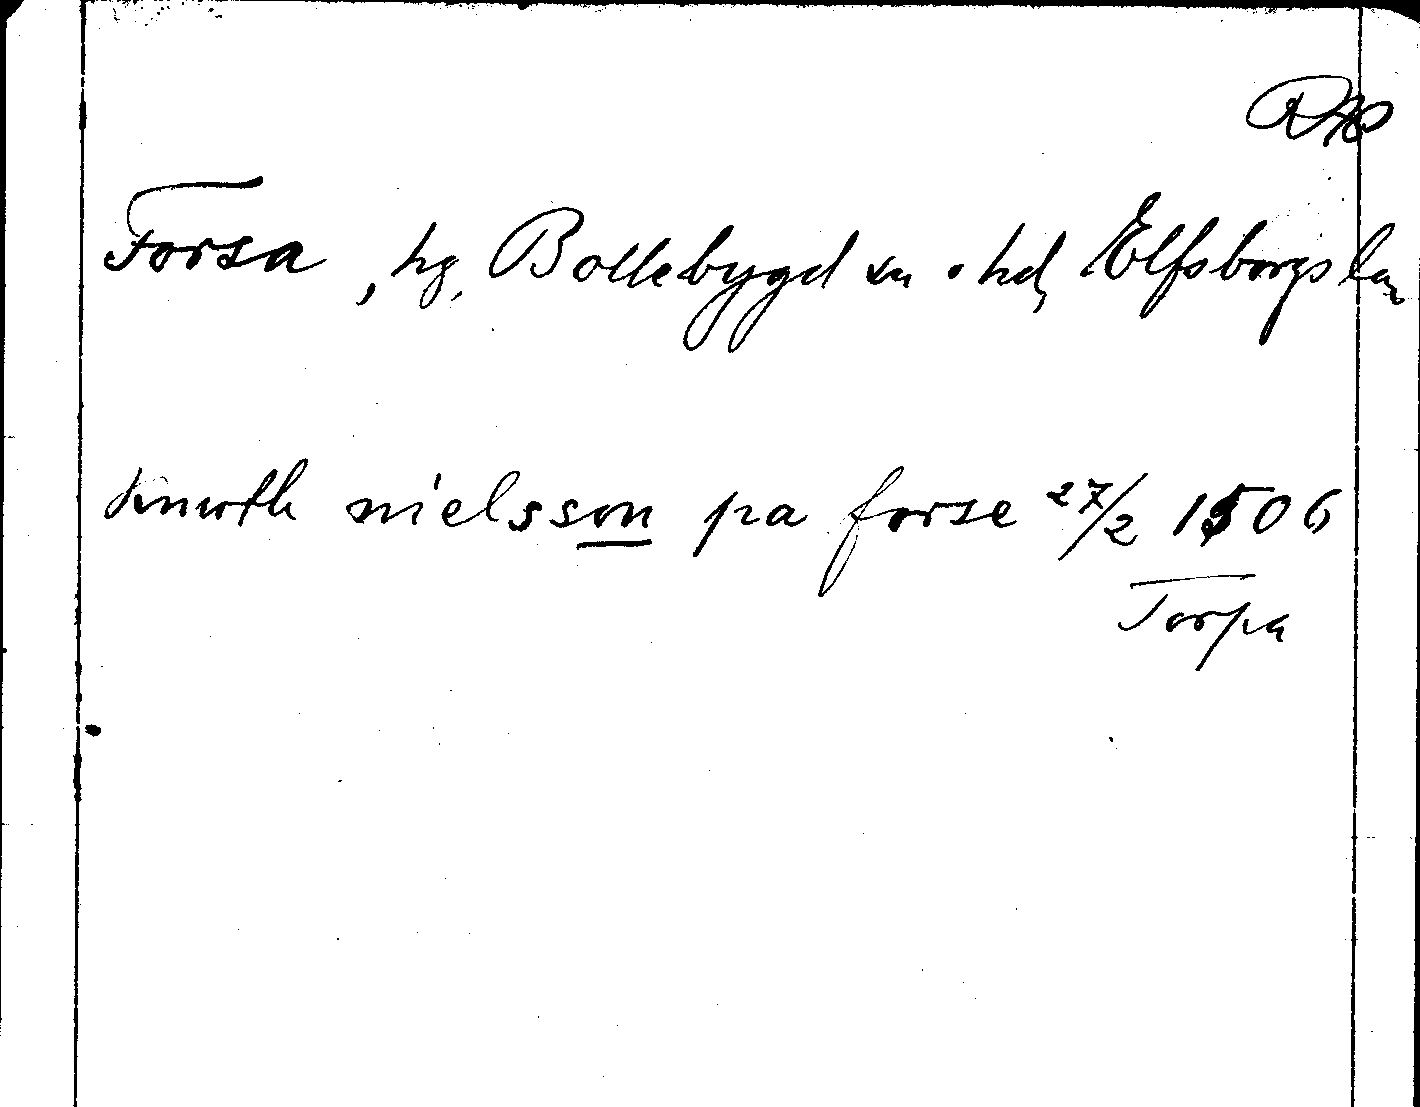 Forsa, hg, Bollebygd sn o hd, Elfsborgs län
Knwth nielsson pa forse 27/2 1506
Torpa